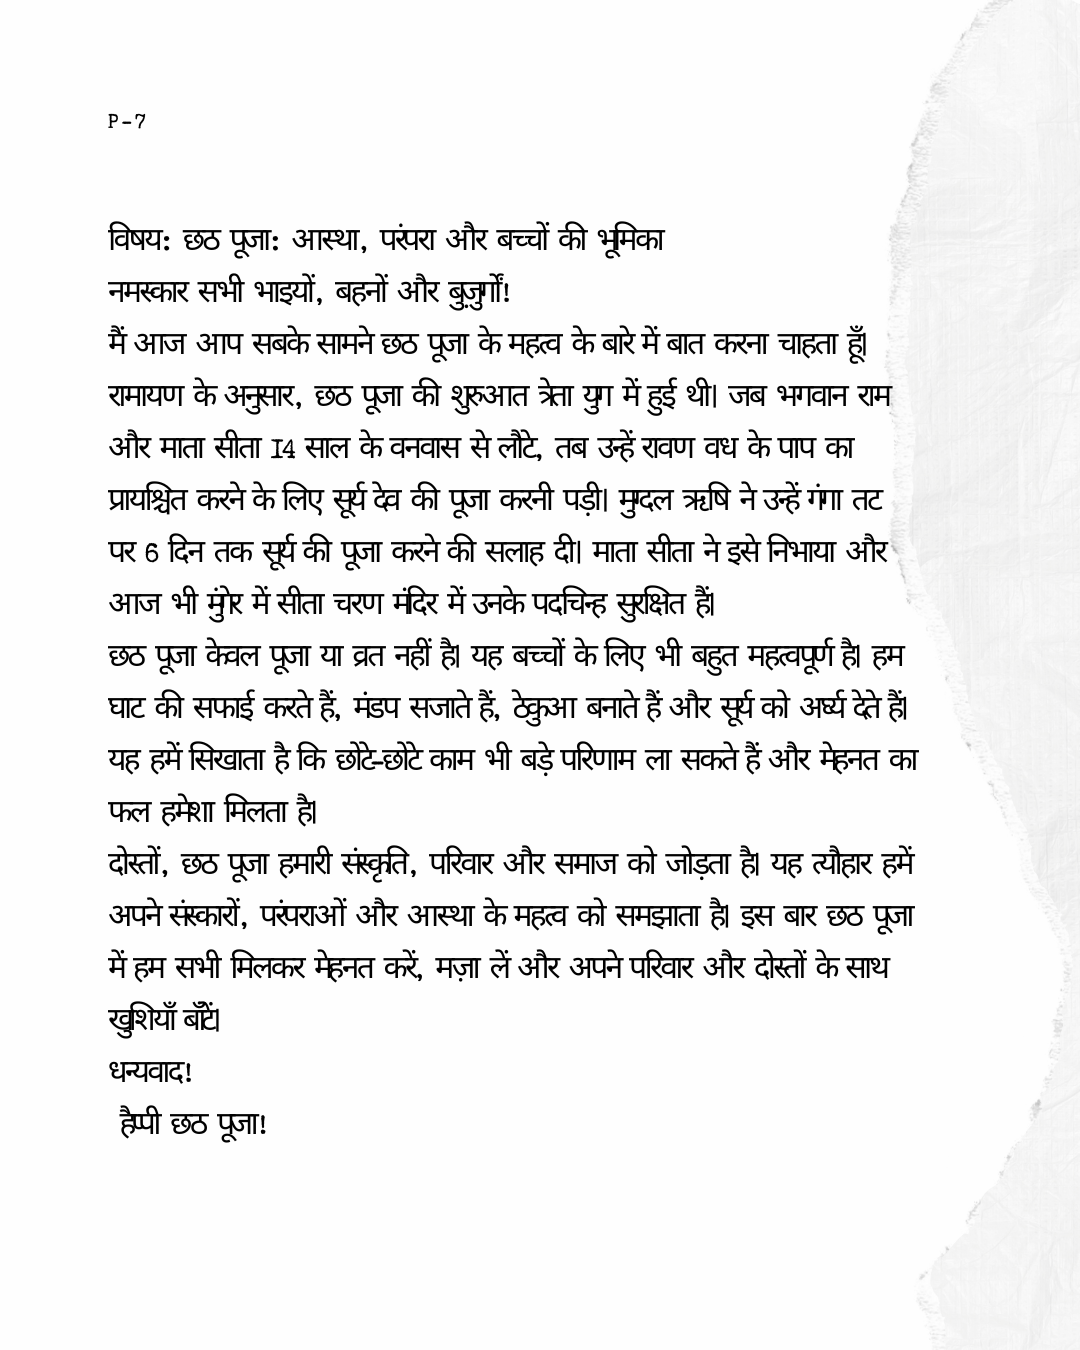 P-7
विषय: छठ पूजा: आस्था, परंपरा और बच्चों की भूमिका
नमस्कार सभी भाइयों, बहनों और बुज़ुर्गों!
मैं आज आप सबके सामने छठ पूजा के महत्व के बारे में बात करना चाहता हूँ|
रामायण के अनुसार, छठ पूजा की शुरुआत त्रेता युग में हुई थी| जब भगवान राम
और माता सीता 14 साल के वनवास से लौटे, तब उन्हें रावण वध के पाप का
प्रायश्चित करने के लिए सूर्य देव की पूजा करनी पड़ी| मुग्दल ऋषि ने उन्हें गंगा तट
पर 6 दिन तक सूर्य की पूजा करने की सलाह दी| माता सीता ने इसे निभाया और
आज भी मुंगेर में सीता चरण मंदिर में उनके पदचिन्ह सुरक्षित हैं|
छठ पूजा केवल पूजा या व्रत नहीं है| यह बच्चों के लिए भी बहुत महत्वपूर्ण है| हम
घाट की सफाई करते हैं, मंडप सजाते हैं, ठेकुआ बनाते हैं और सूर्य को अर्घ्य देते हैं|
यह हमें सिखाता है कि छोटे-छोटे काम भी बड़े परिणाम ला सकते हैं और मेहनत का
फल हमेशा मिलता है|
दोस्तों, छठ पूजा हमारी संस्कृति, परिवार और समाज को जोड़ता है| यह त्यौहार हमें
अपने संस्कारों, परंपराओं और आस्था के महत्व को समझाता है| इस बार छठ पूजा
में हम सभी मिलकर मेहनत करें, मज़ा लें और अपने परिवार और दोस्तों के साथ
खुशियाँ बाँटें|
धन्यवाद!
हैप्पी छठ पूजा!